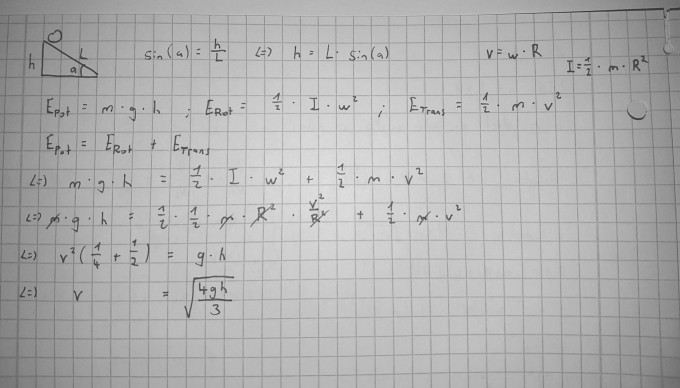 h L a sin(a) = h/L <=> h = L · sin(a) v = w · R I = 1/2 · m · R²
E_Pot = m · g · h ; E_Rot = 1/2 · I · w² ; E_Trans = 1/2 · m · v²
E_Pot = E_Rot + E_Trans
<=> m · g · h = 1/2 · I · w² + 1/2 · m · v²
<=> m · g · h = 1/2 · 1/2 · m · R² · v²/R² + 1/2 · m · v²
<=> v² (1/4 + 1/2) = g · h
<=> v = √(4gh/3)